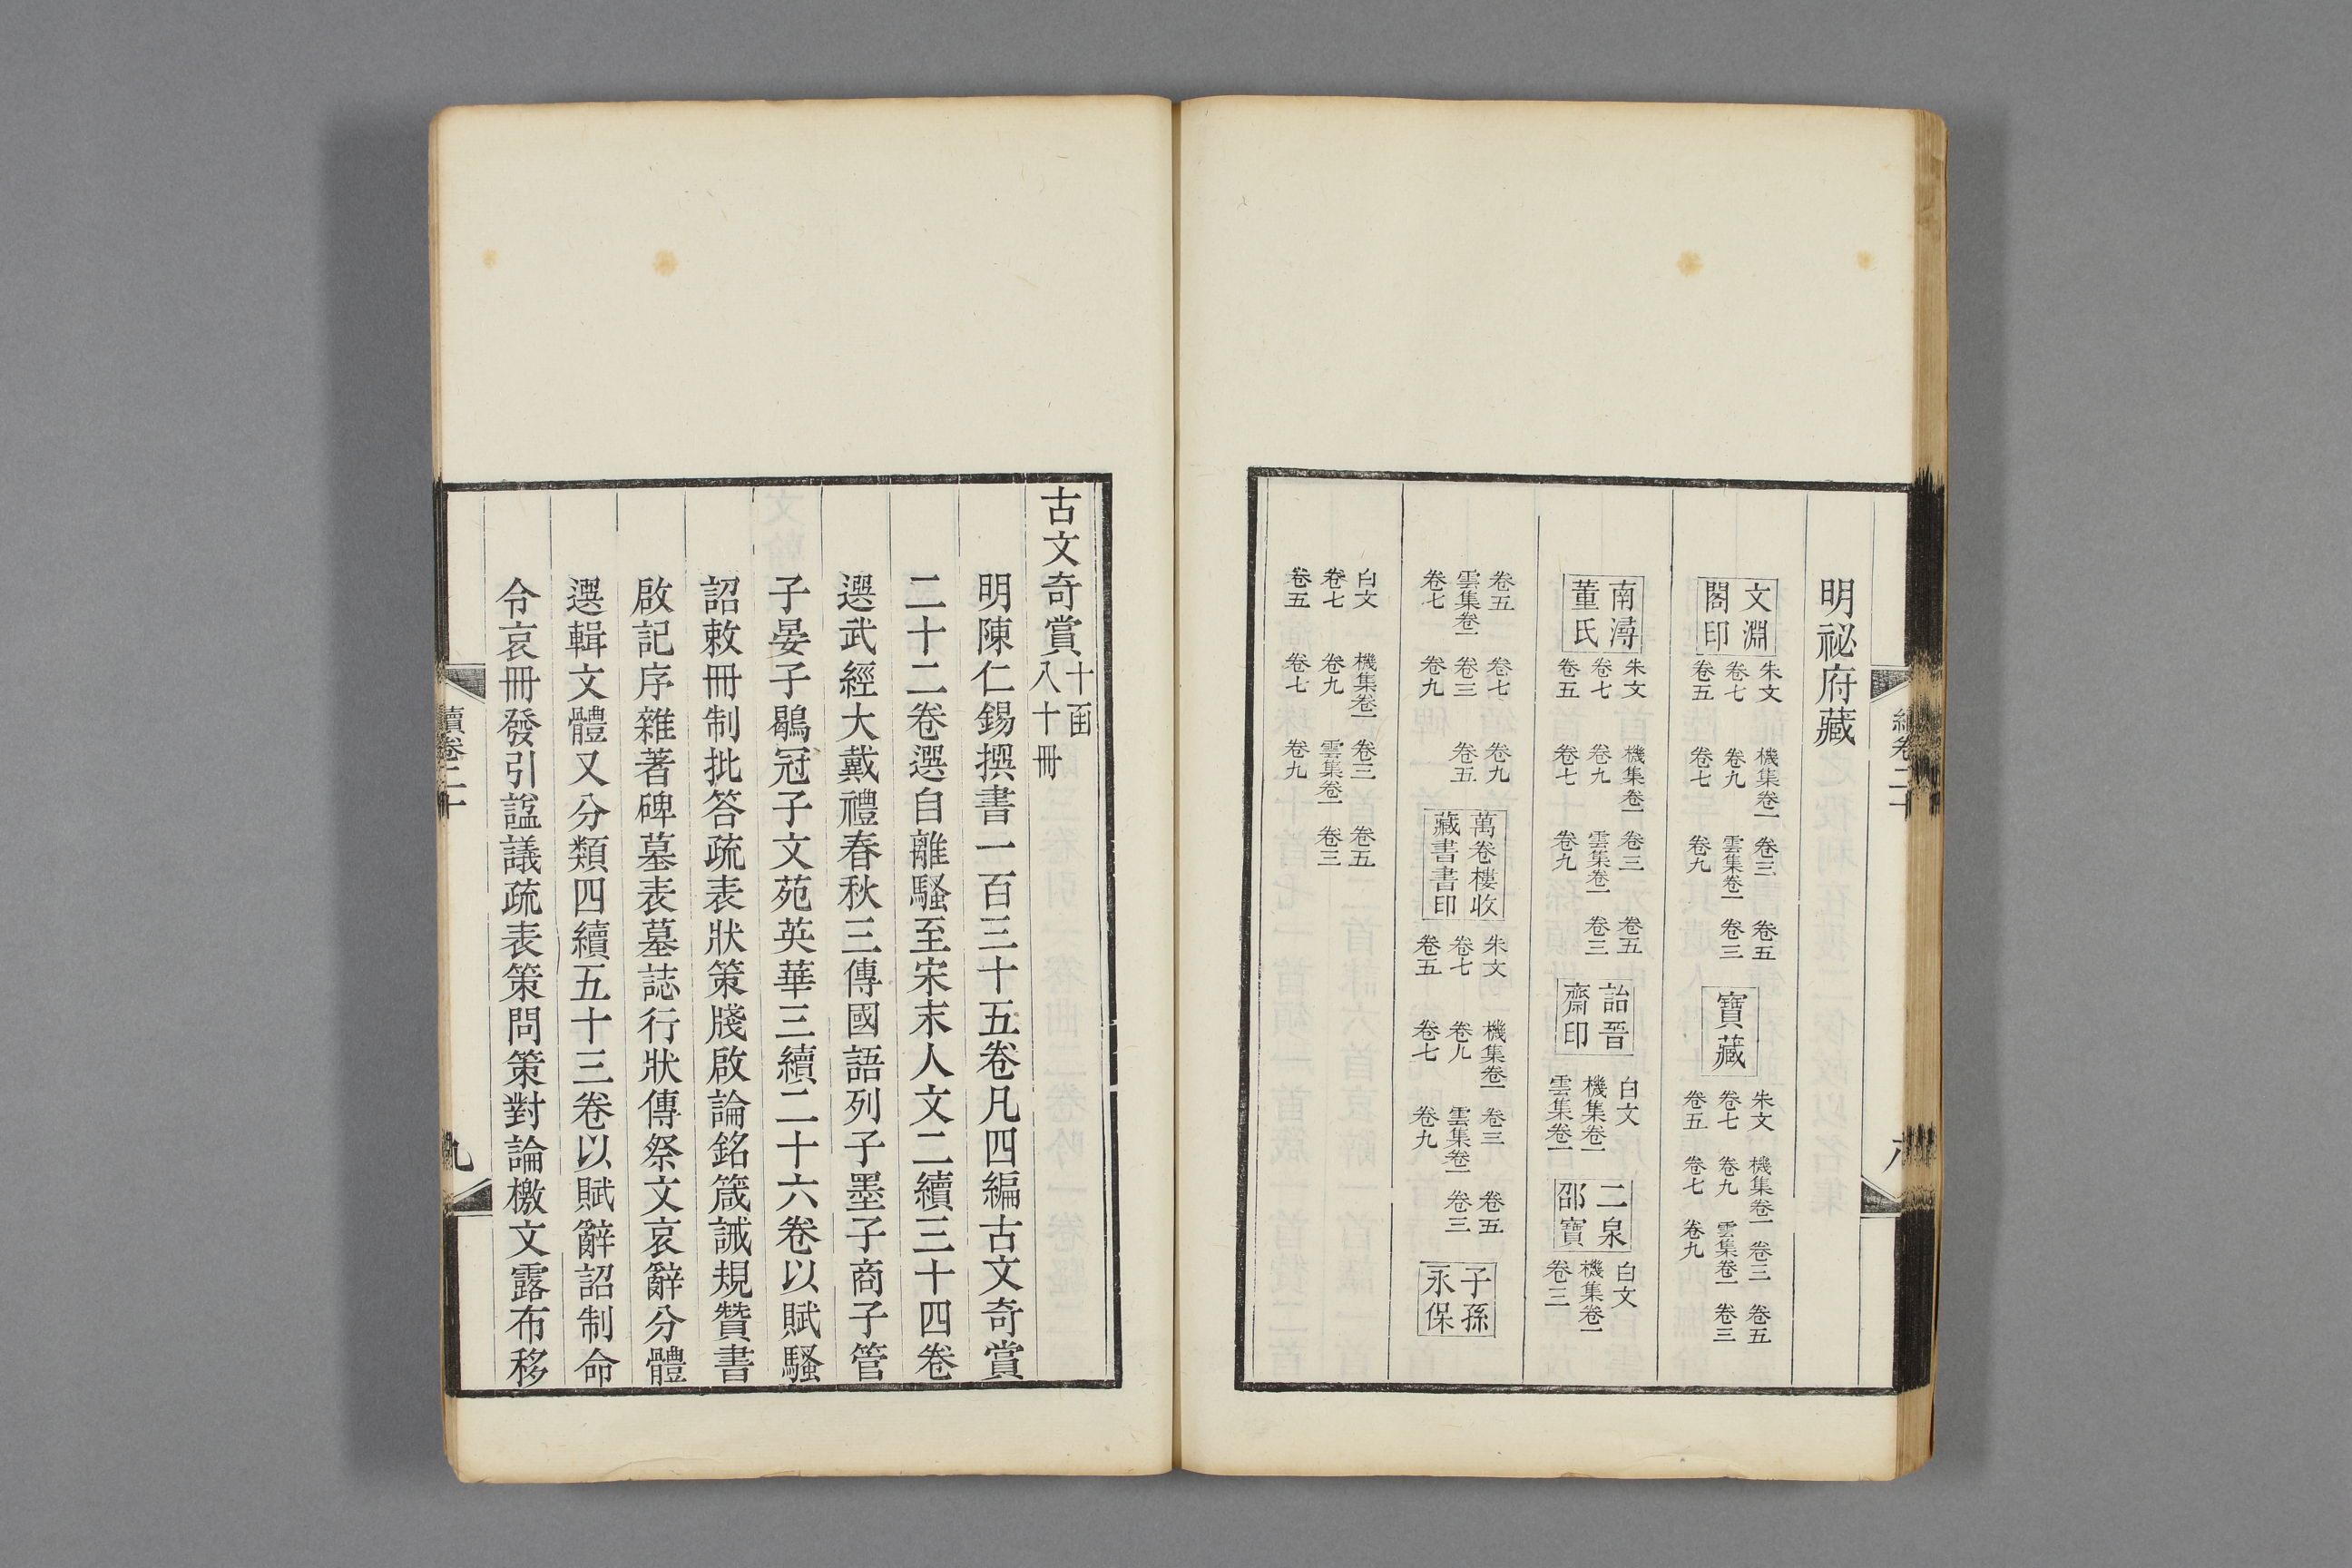 明祕府藏
文淵閣印 朱文 機集卷一 卷三 卷五 卷七 卷九 雲集卷一 卷三 卷五 卷七 卷九 寶藏 朱文 機集卷一 卷三 卷五 卷七 卷九 雲集卷一 卷三 卷五 卷七 卷九
南潯董氏 朱文 機集卷一 卷三 卷五 卷七 卷九 雲集卷一 卷三 卷五 卷七 卷九 詒晉齋印 白文 機集卷一 雲集卷一 二泉邵寶 白文 機集卷一 卷三
卷五 卷七 卷九 雲集卷一 卷三 卷五 卷七 卷九 萬卷樓收藏書書印 朱文 機集卷一 卷三 卷五 卷七 卷九 雲集卷一 卷三 卷五 卷七 卷九 子孫永保
白文 機集卷一 卷三 卷五 卷七 卷九 雲集卷一 卷三 卷五 卷七 卷九
古文奇賞 十函八十冊
明陳仁錫撰書一百三十五卷凡四編古文奇賞
二十二卷選自離騷至宋末人文二續三十四卷
選武經大戴禮春秋三傳國語列子墨子商子管
子晏子鶡冠子文苑英華三續二十六卷以賦騷
詔敕冊制批答疏表狀策牋啟論銘箴誡規贊書
啟記序雜著碑墓表墓誌行狀傳祭文哀辭分體
選輯文體又分類四續五十三卷以賦辭詔制命
令哀冊發引諡議疏表策問策對論檄文露布移
續卷二十
九